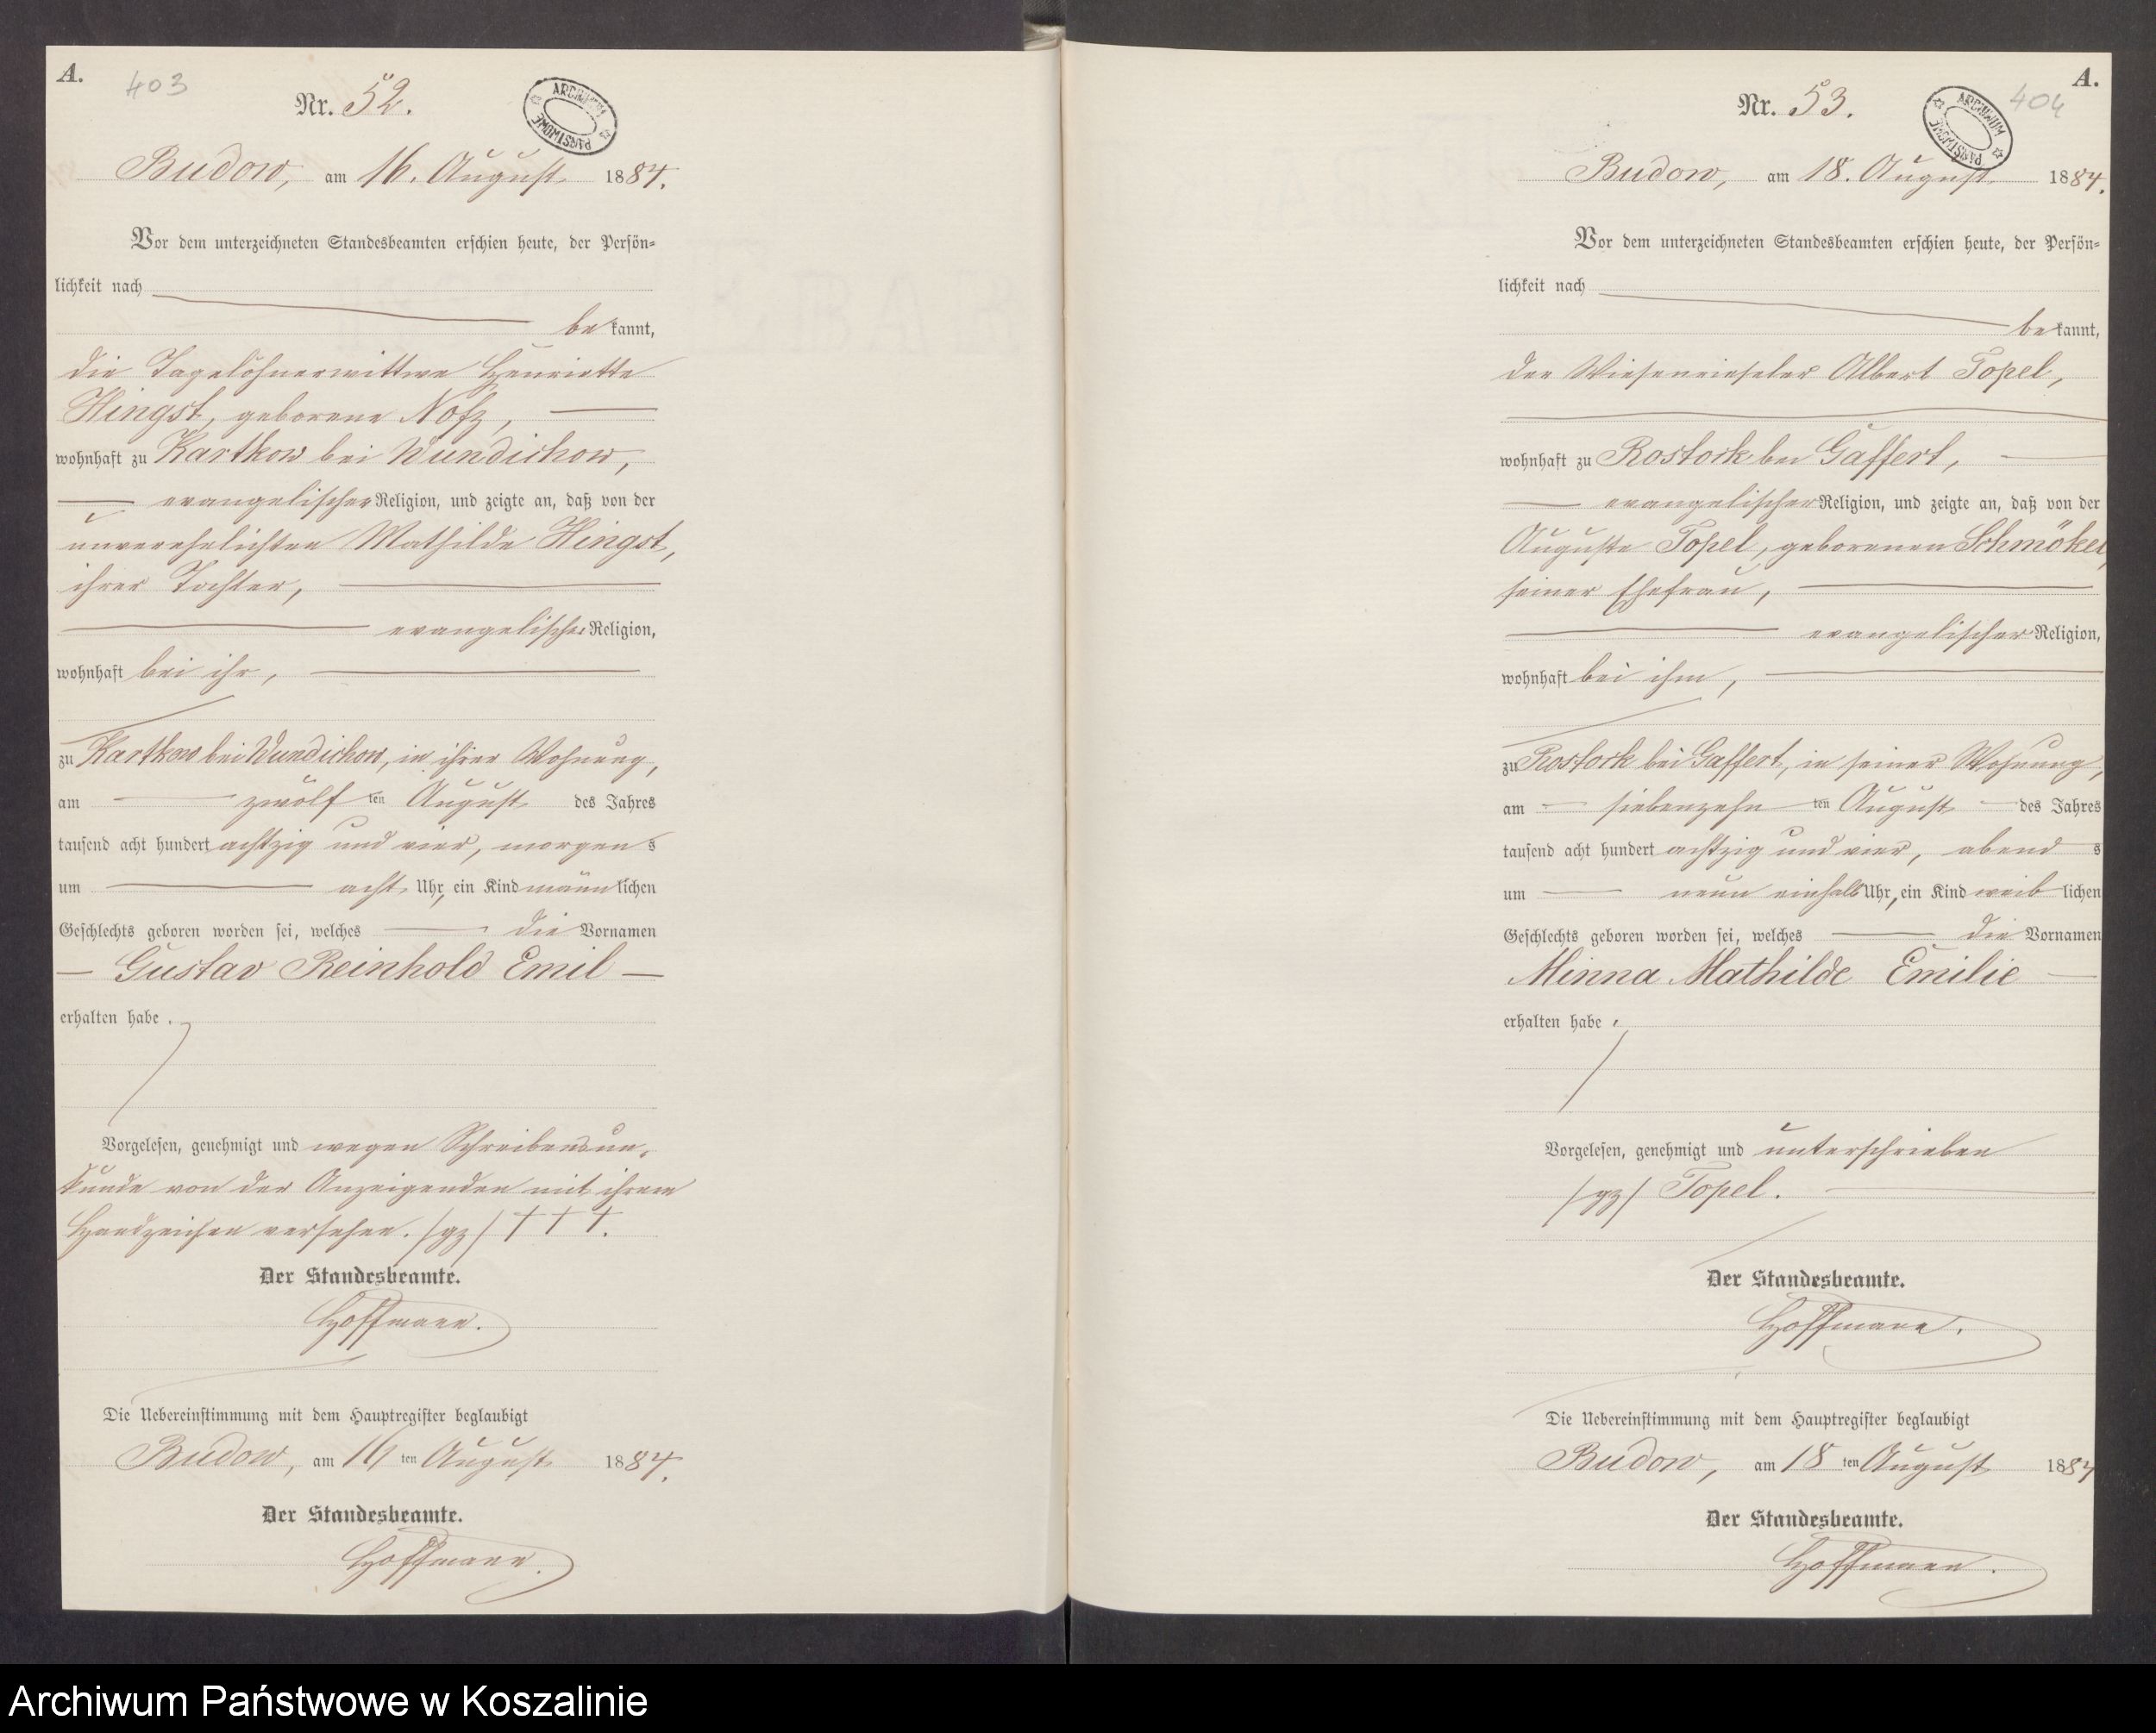 A.
403
Nr. 52.
ARCHIWUM PAŃSTWOWE
Budow, am 16. August 1884.
Vor dem unterzeichneten Standesbeamten erschien heute, der Persön-
lichkeit nach
bekannt,
die Tagelöhnerwittwe Henriette
Hingst, geborene Notz,
wohnhaft zu Kartkow bei Wundichow,
evangelischer Religion, und zeigte an, daß von der
unverehelichten Mathilde Hingst,
ihrer Tochter,
evangelischer Religion,
wohnhaft bei ihr,
zu Kartkow bei Wundichow, in ihrer Wohnung,
am zwölften August des Jahres
tausend acht hundert achtzig und vier, morgens
um acht Uhr, ein Kind männlichen
Geschlechts geboren worden sei, welches die Vornamen
Gustav Reinhold Emil
erhalten habe.
Vorgelesen, genehmigt und wegen Schreibensun-
kunde von der Anzeigenden mit ihrem
Handzeichen versehen. /gz/ † † †.
Der Standesbeamte.
Hoffmann.
Die Uebereinstimmung mit dem Hauptregister beglaubigt
Budow, am 16ten August 1884.
Der Standesbeamte.
Hoffmann.
A.
404
Nr. 53.
ARCHIWUM PAŃSTWOWE
Budow, am 18. August 1884.
Vor dem unterzeichneten Standesbeamten erschien heute, der Persön-
lichkeit nach
bekannt,
der Wiesenrieseler Albert Topel,
wohnhaft zu Rostock bei Gaffert,
evangelischer Religion, und zeigte an, daß von der
Auguste Topel, geborenen Schmökel,
seiner Ehefrau,
evangelischer Religion,
wohnhaft bei ihm,
zu Rostock bei Gaffert, in seiner Wohnung,
am siebenzehnten August des Jahres
tausend acht hundert achtzig und vier, abends
um neun einhalb Uhr, ein Kind weiblichen
Geschlechts geboren worden sei, welches die Vornamen
Minna Mathilde Emilie
erhalten habe.
Vorgelesen, genehmigt und unterschrieben
/gz/ Topel.
Der Standesbeamte.
Hoffmann.
Die Uebereinstimmung mit dem Hauptregister beglaubigt
Budow, am 18ten August 1884
Der Standesbeamte.
Hoffmann.
Archiwum Państwowe w Koszalinie